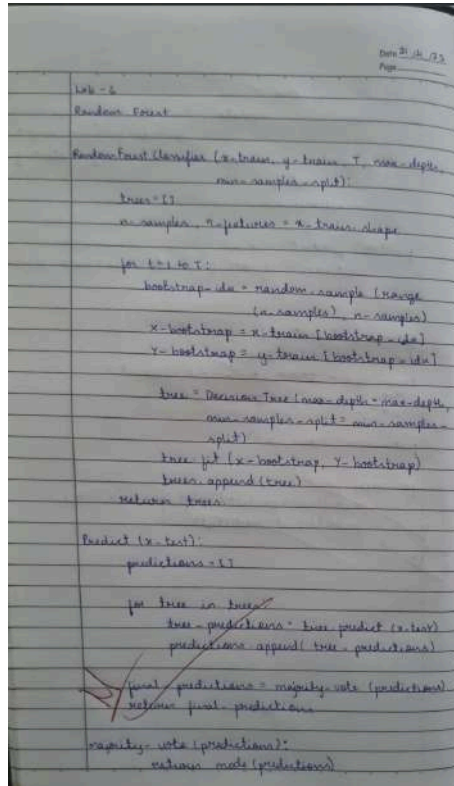 Date
Page
Lab - 6
Random Forest
RandomForestClassifier (x-train, y-train, T, max-depth,
min-samples-split):
trees = []
n-samples, n-features = x-train.shape
for t=1 to T:
bootstrap-idx = random-sample (range
(n-samples), n-samples)
X-bootstrap = x-train [bootstrap-idx]
Y-bootstrap = y-train [bootstrap-idx]
tree = Decision Tree (max-depth = max-depth,
min-samples-split = min-samples-
split)
tree.fit (x-bootstrap, Y-bootstrap)
trees.append (tree)
return trees
Predict (x-test):
predictions = []
for tree in trees:
tree-predictions = tree.predict (x-test)
predictions.append( tree-predictions)
final-predictions = majority-vote (predictions)
return final-predictions
majority-vote (predictions):
return mode (predictions)